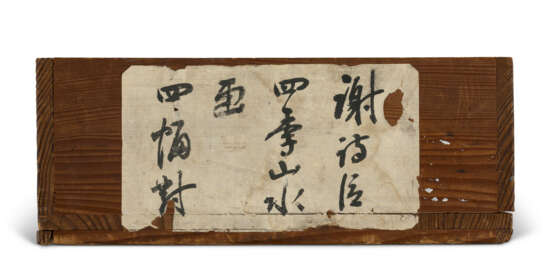 謝時臣
四季山水
画
四幅對